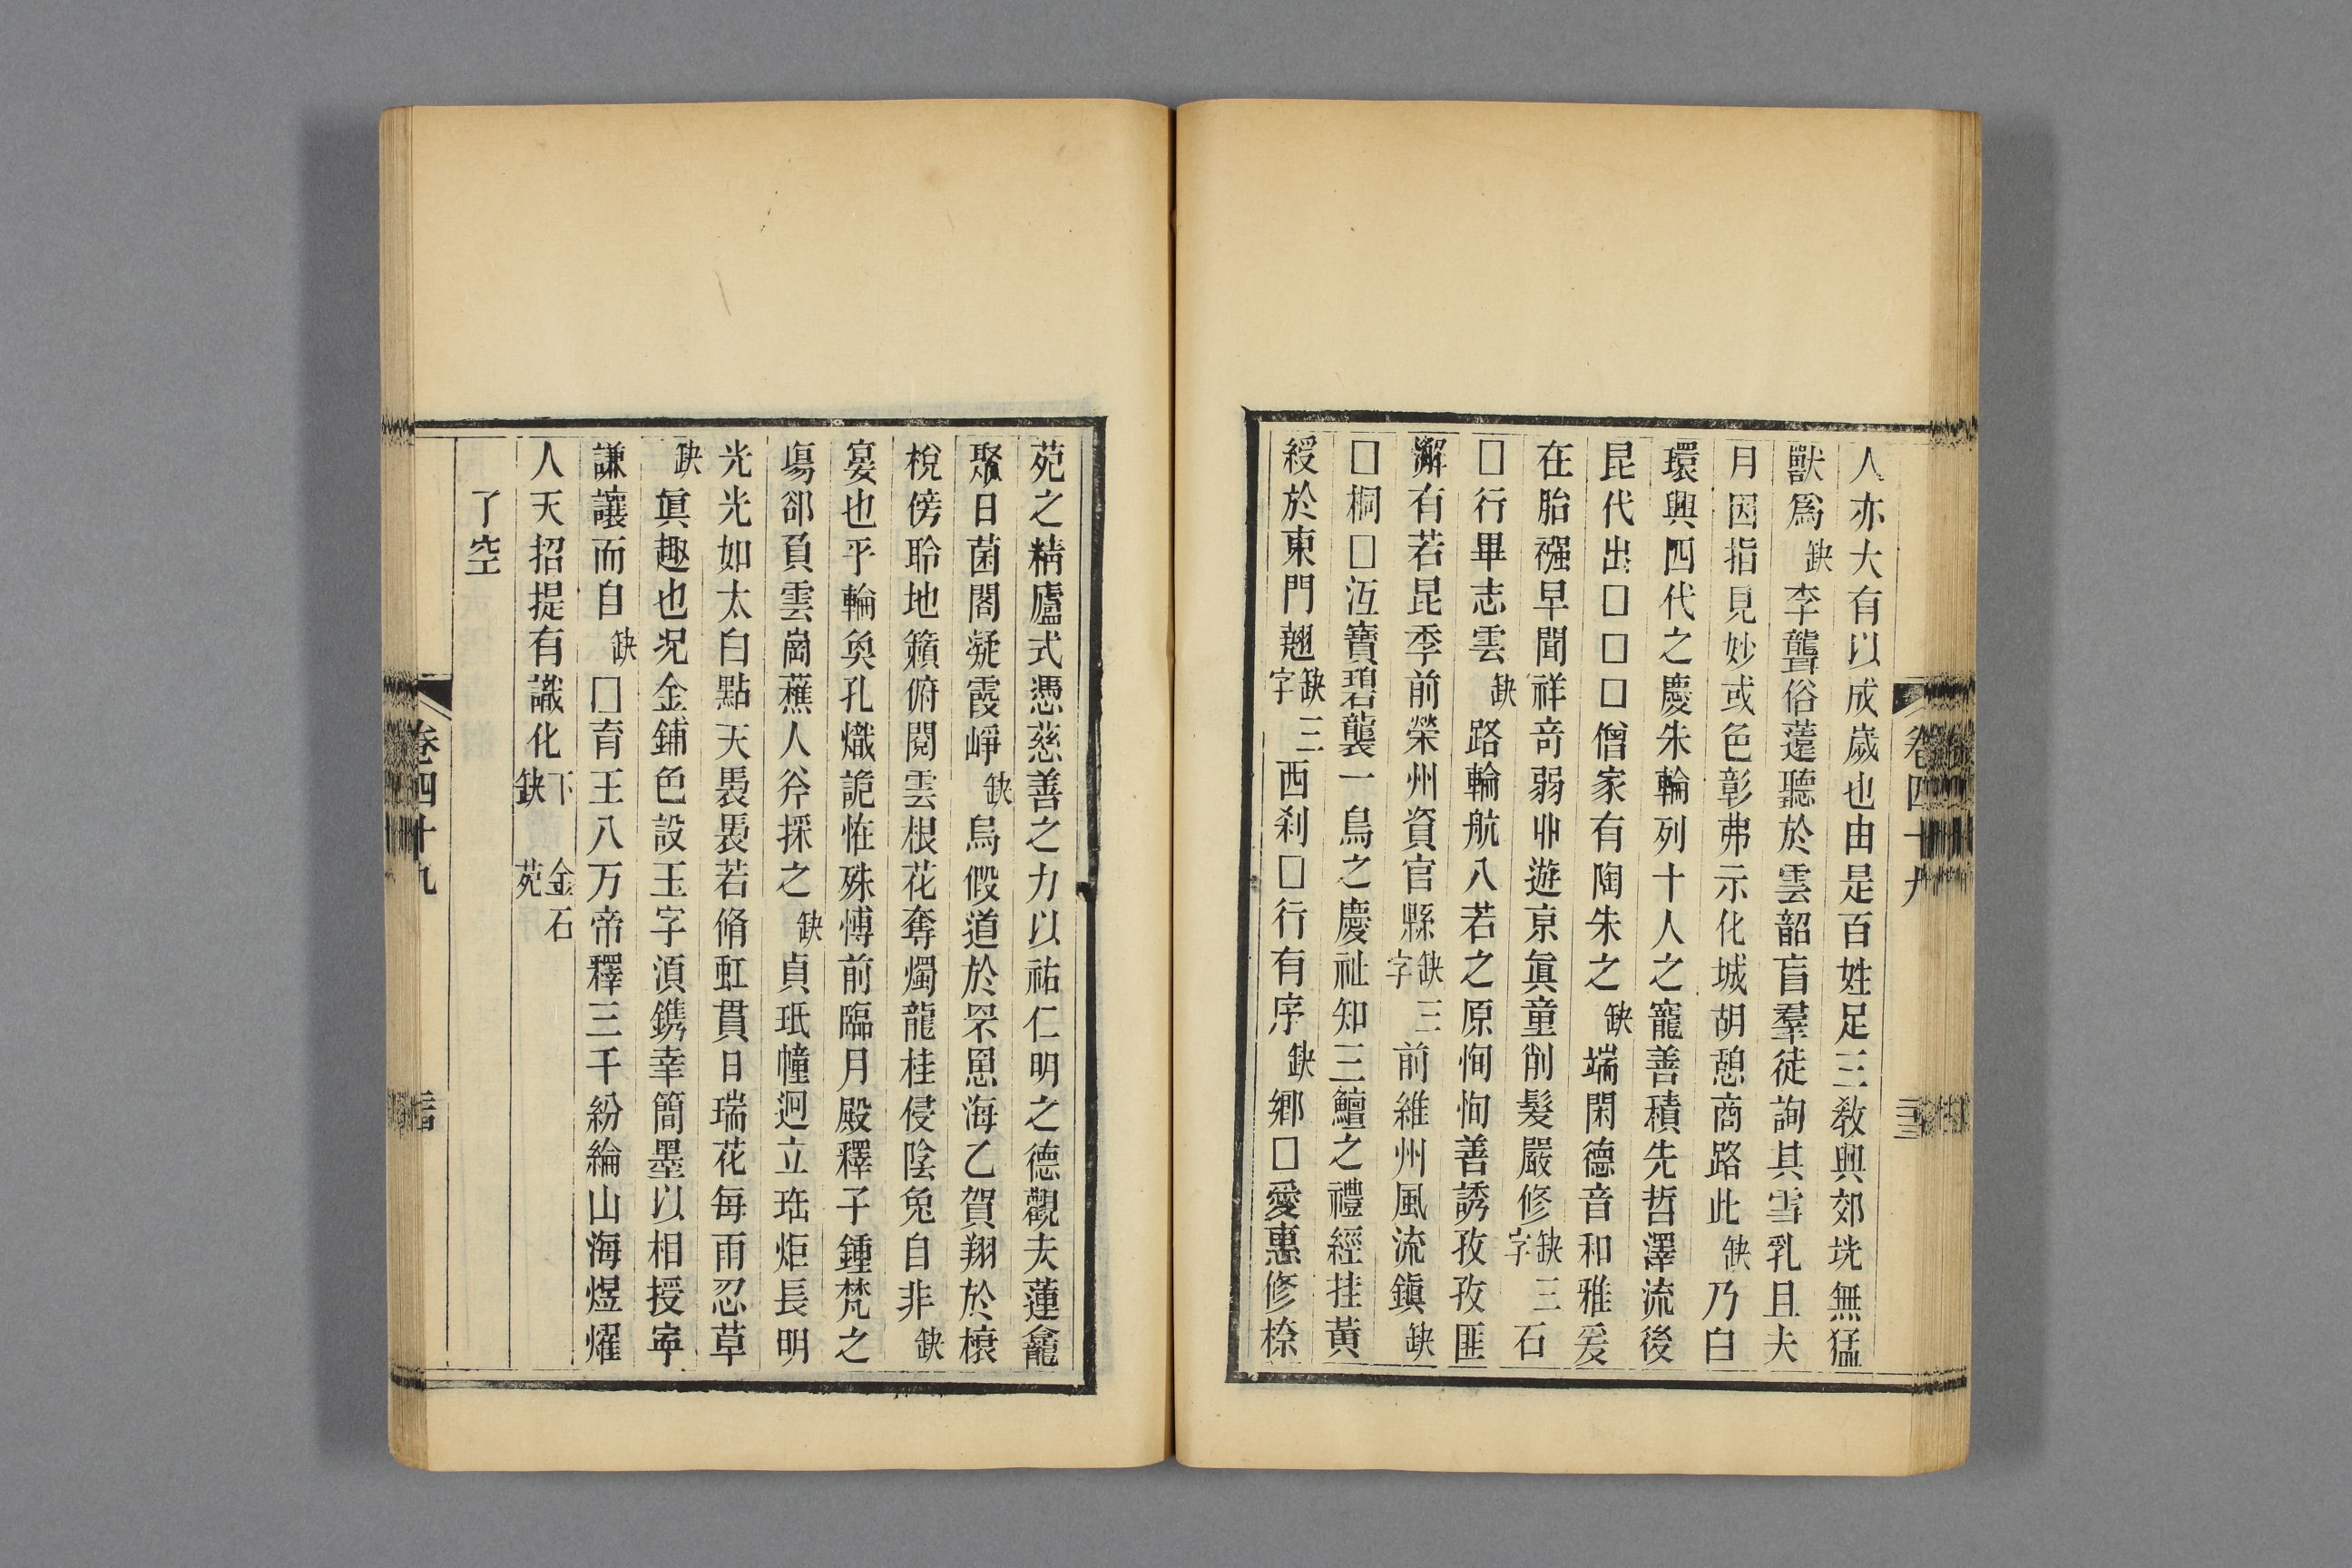 人亦大有以成歲也由是百姓足三敎興郊垙無猛
獸爲缺李聾俗薳聽於雲韶盲羣徒詢其雪乳且夫
月因指見妙或色彰弗示化城胡憩商路此缺乃白
環興四代之慶朱輪列十人之寵善積先哲澤流後
昆代出□□□僧家有陶朱之缺端閑德音和雅爰
在胎襁早聞祥奇弱丱遊京眞童削髮嚴修缺三字石
□行畢志雲缺路輪航八若之原恂恂善誘孜孜匪
澥有若昆季前榮州資官縣缺三字前維州風流鎭缺
□桐□沍寶碧襲一鳥之慶祉知三鱣之禮經挂黃
綬於東門翹缺三字西刹□行有序缺鄉□愛惠修捺
苑之精廬式憑慈善之力以祐仁明之德觀夫蓮龕
聚日菌閣凝霞崢缺烏假道於罘罳海乙賀翔於榱
梲傍聆地籟俯閱雲根花奪燭龍桂侵陰兔自非缺
宴也乎輪奐孔熾詭恠殊愽前臨月殿釋子鍾梵之
塲郤負雲崗蕉人斧採之缺貞珉幢迥立珤炬長明
光光如太白點天褭褭若脩虹貫日瑞花每雨忍草
缺眞趣也况金鋪色設玉字湏鐫幸簡墨以相授寧
謙讓而自缺□育王八万帝釋三千紛綸山海煜燿
人天招提有識化下缺 金石苑
了空
卷四十九
卷四十九